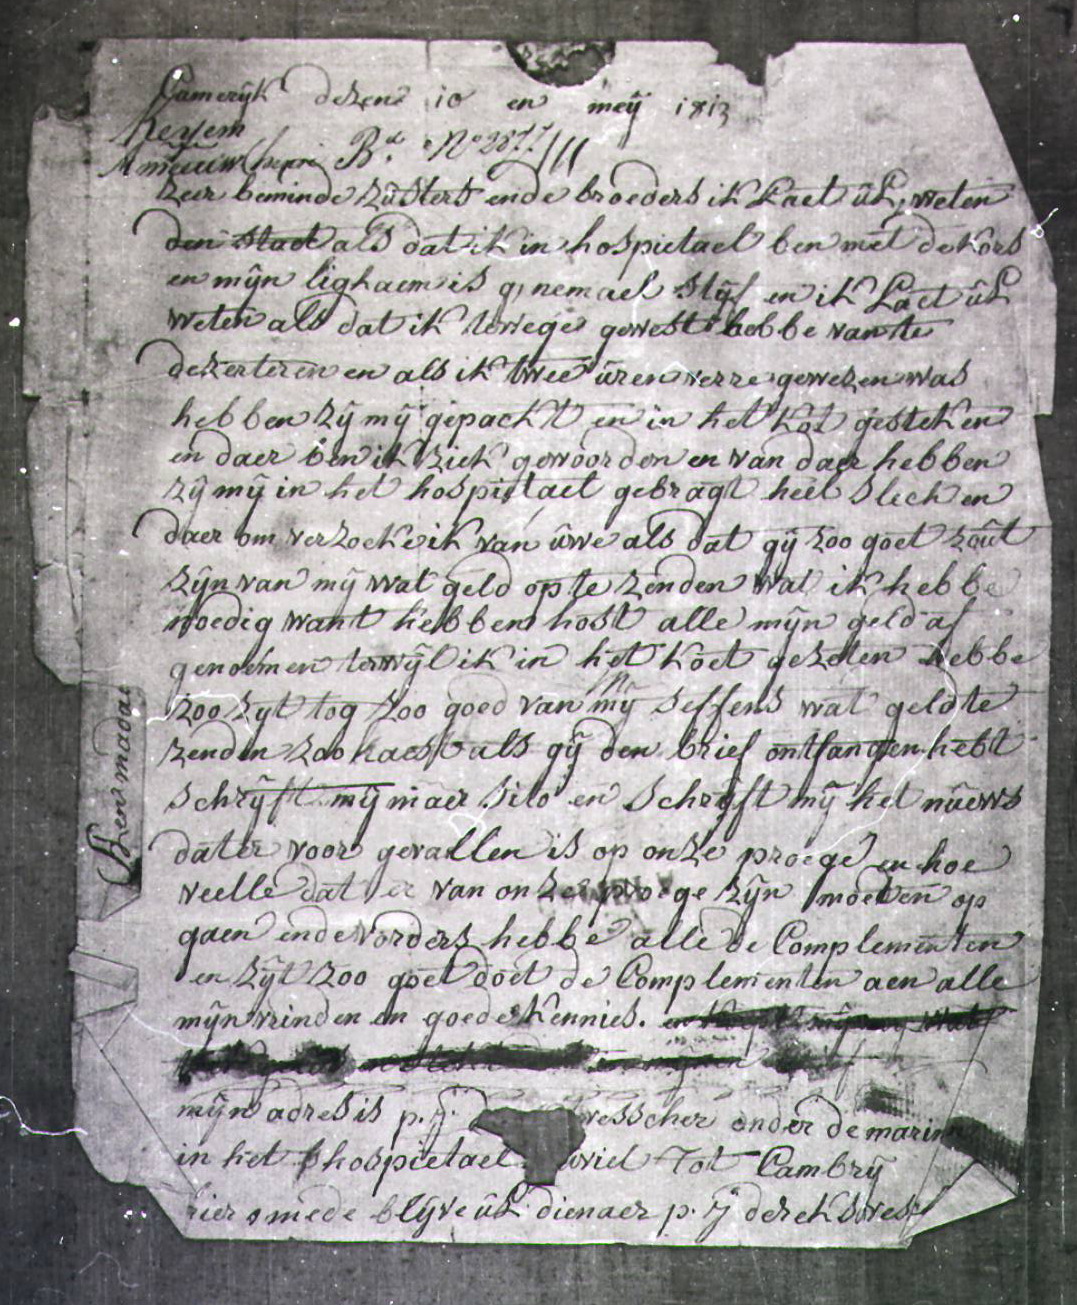 Camerÿk dezen 10 en meÿ 1813
Keyem
Bd. No 2877
Zeer beminde züsters ende broeders ik Laet ûL weten
den staet als dat ik in hospietael ben met de kors
en mÿn lighaem is g nemael stÿf en ik Laet ûL
weten als dat ik tewege gewest hebbe van te
dezerteren en als ik twee ûren verre gewezen was
hebben zÿ mÿ gepackt en in het kot gesteken
en daer ben ik ziek gewoorden en van daer hebben
zÿ mÿ in het hospietael gebragt heel slech en
daer om verzoeke ik van ûwe als dat gÿ zoo goet zoût
zÿn van mÿ wat geld op te zenden wat ik hebbe
noedig want hebben host alle mÿn geld af
genoemen terwÿl ik in het koet gezeten hebbe
zoo zyt tog zoo goed van mÿ seffens wat geld te
zenden zoo haest als gÿ den brief ontfangen hebt
schrÿft mÿ maer sito en schrÿft mÿ het nûews
dater voor gevallen is op onze proege en hoe
veelle dat er van onze proege zÿn moeten op
gaen ende vorders hebbe alle de Complementen
en zÿt zoo goet doet de Complementen aen alle
mÿn vrinden en goede kennies.
mÿn adres is p. j. esscher onder de marin
in het hospietael tot Cambrÿ
hier mede blÿve ûL dienaer p. j derck